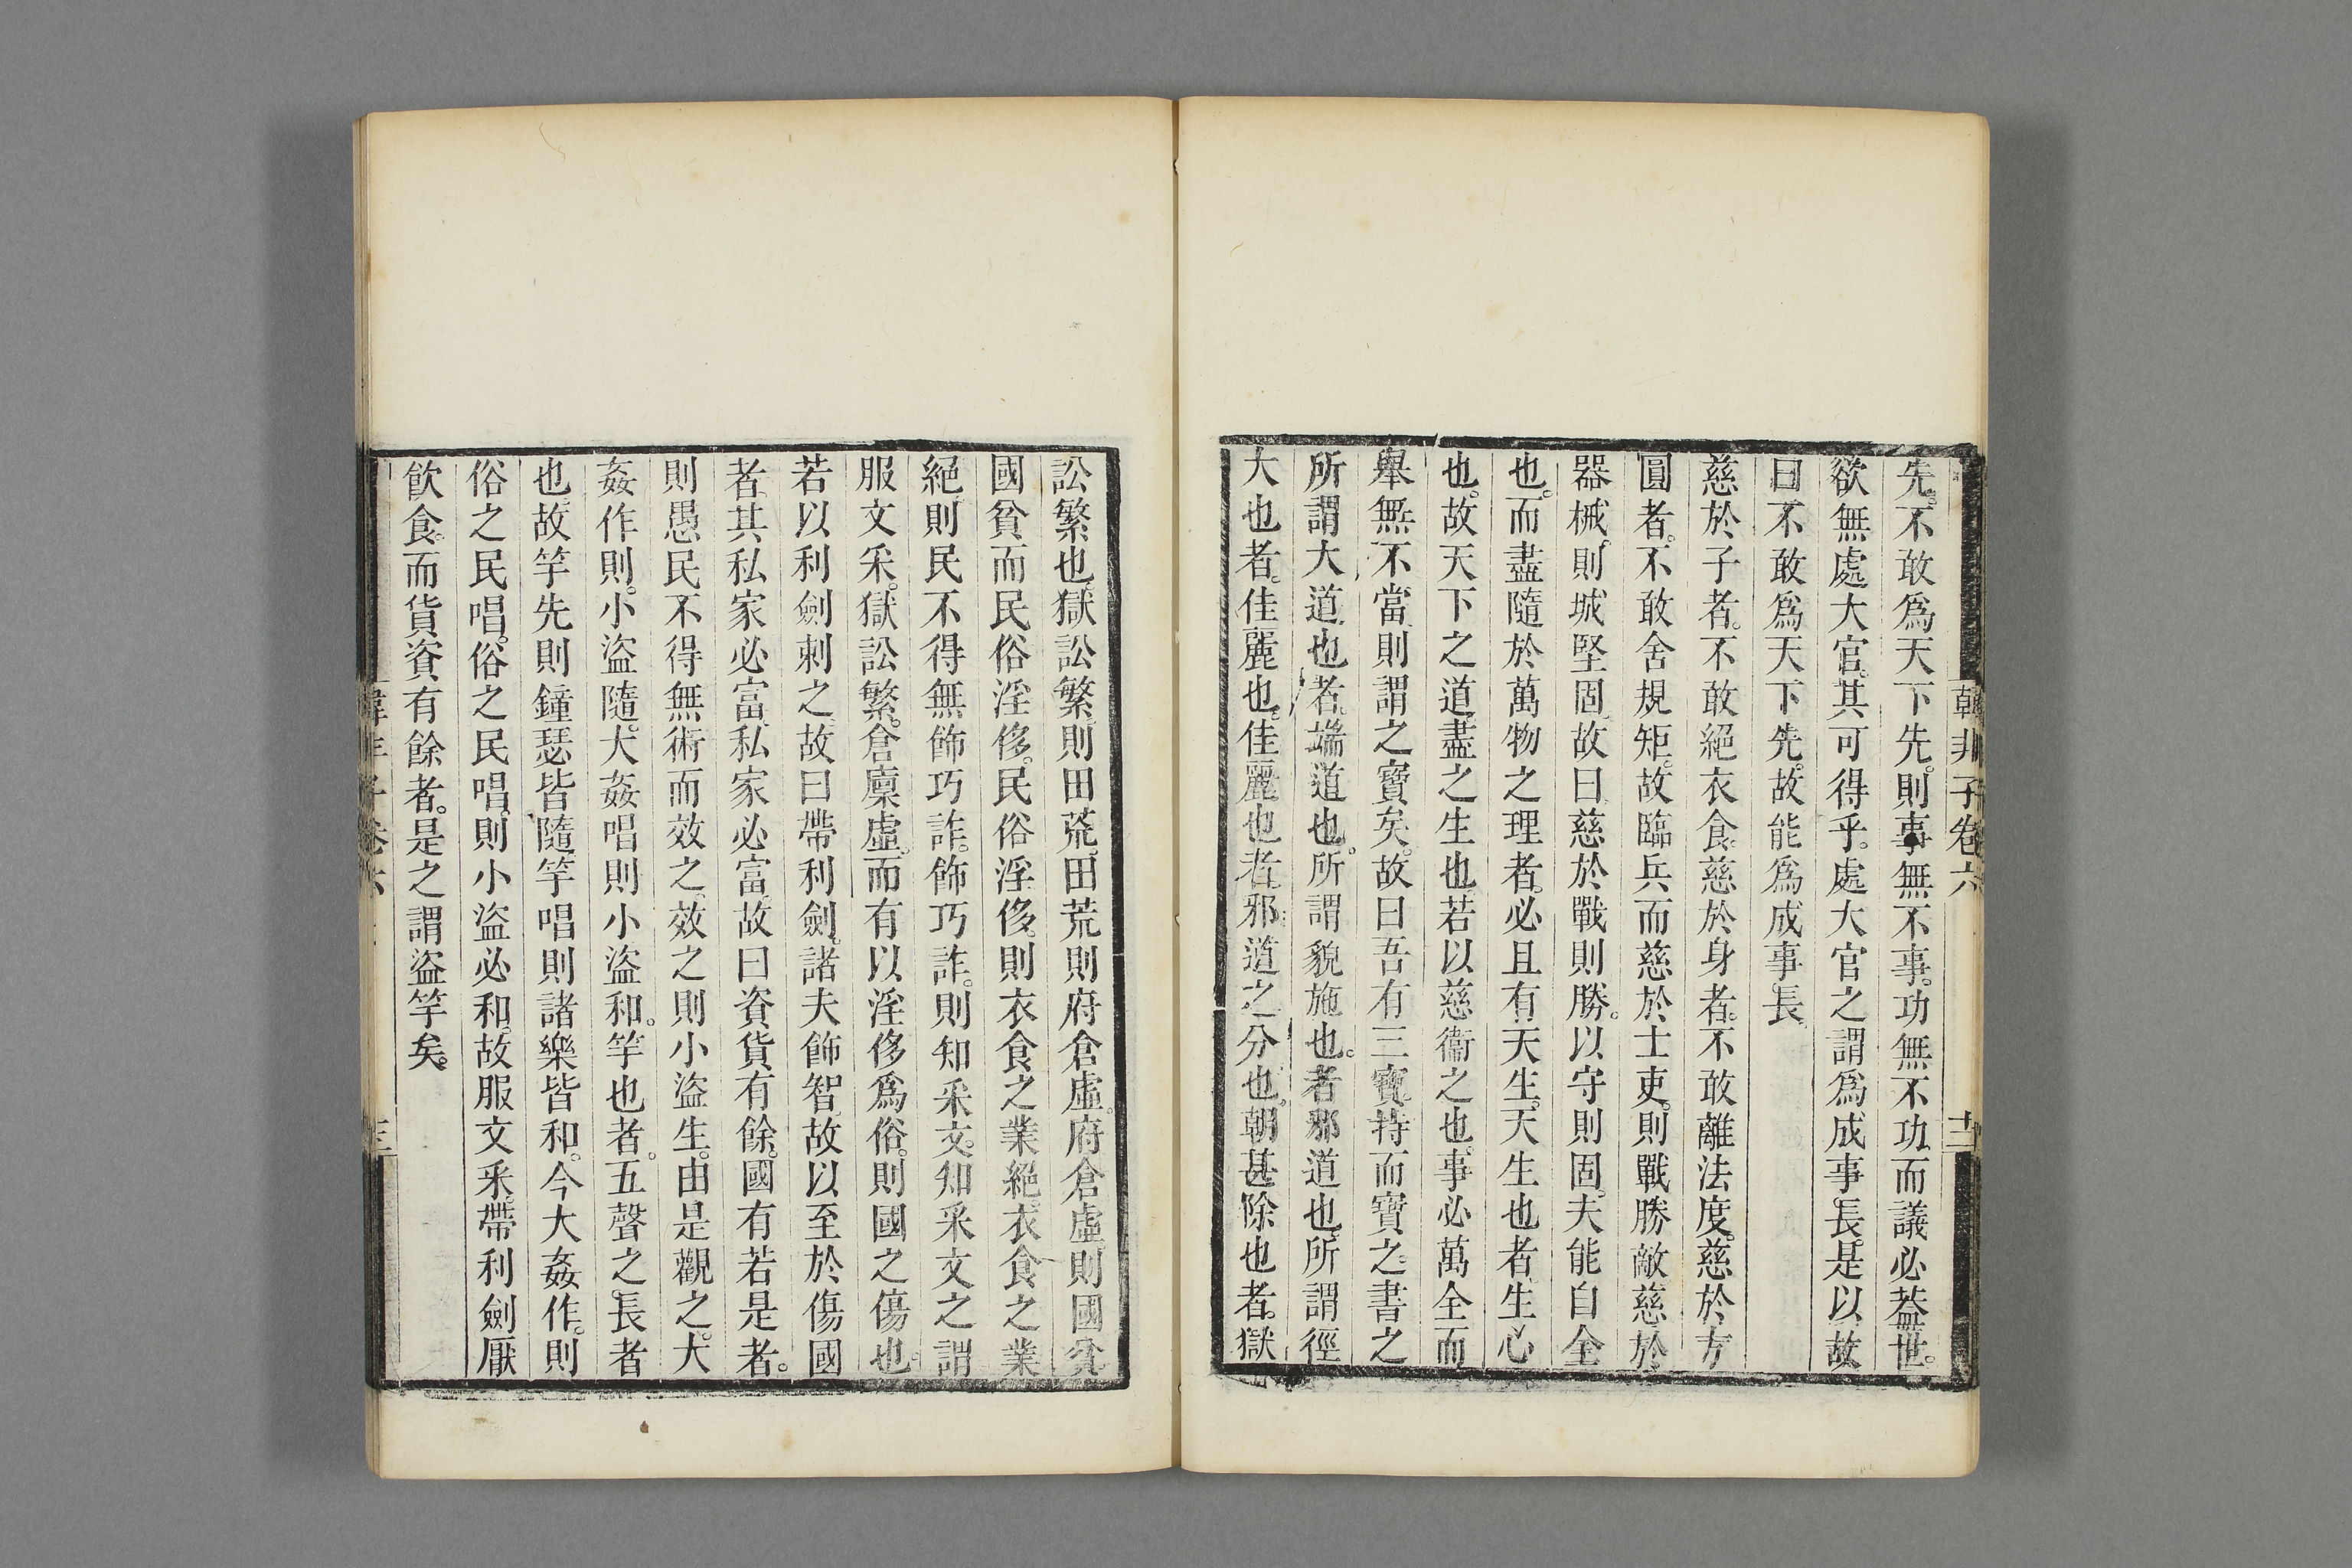 韓非子卷六 十二
先。不敢爲天下先。則事無不事。功無不功。而議必葢世。
欲無處大官。其可得乎。處大官之謂爲成事長。是以故
曰不敢爲天下先。故能爲成事長。
慈於子者。不敢絕衣食。慈於身者。不敢離法度。慈於方
圓者。不敢舍規矩。故臨兵而慈於士吏。則戰勝敵。慈於
器械。則城堅固。故曰慈於戰則勝。以守則固。夫能自全
也。而盡隨於萬物之理者。必且有天生。天生也者。生心
也。故天下之道。盡之生也。若以慈衞之也。事必萬全。而
舉無不當。則謂之寶矣。故曰吾有三寶。持而寶之。書之
所謂大道也者。端道也。所謂貌施也。者邪道也。所謂徑
大也者。佳麗也。佳麗也者。邪道之分也。朝甚除也者。獄
訟繁也。獄訟繁。則田荒。田荒則府倉虛。府倉虛則國貧。
國貧而民俗淫侈。民俗淫侈。則衣食之業絕。衣食之業
絕。則民不得無飾巧詐。飾巧詐。則知采文。知采文之謂
服文采。獄訟繁。倉廩虛。而有以淫侈爲俗。則國之傷也。
若以利劍刺之。故曰帶利劍。諸夫飾智故以至於傷國
者。其私家必富。私家必富。故曰資貨有餘。國有若是者。
則愚民不得無術而效之。效之則小盜生。由是觀之。大
姦作則。小盜隨。大姦唱則小盜和。竽也者。五聲之長者
也。故竽先則鐘瑟皆隨。竽唱則諸樂皆和。今大姦作。則
俗之民唱。俗之民唱。則小盜必和。故服文采。帶利劍。厭
飮食。而貨資有餘者。是之謂盜竽矣。